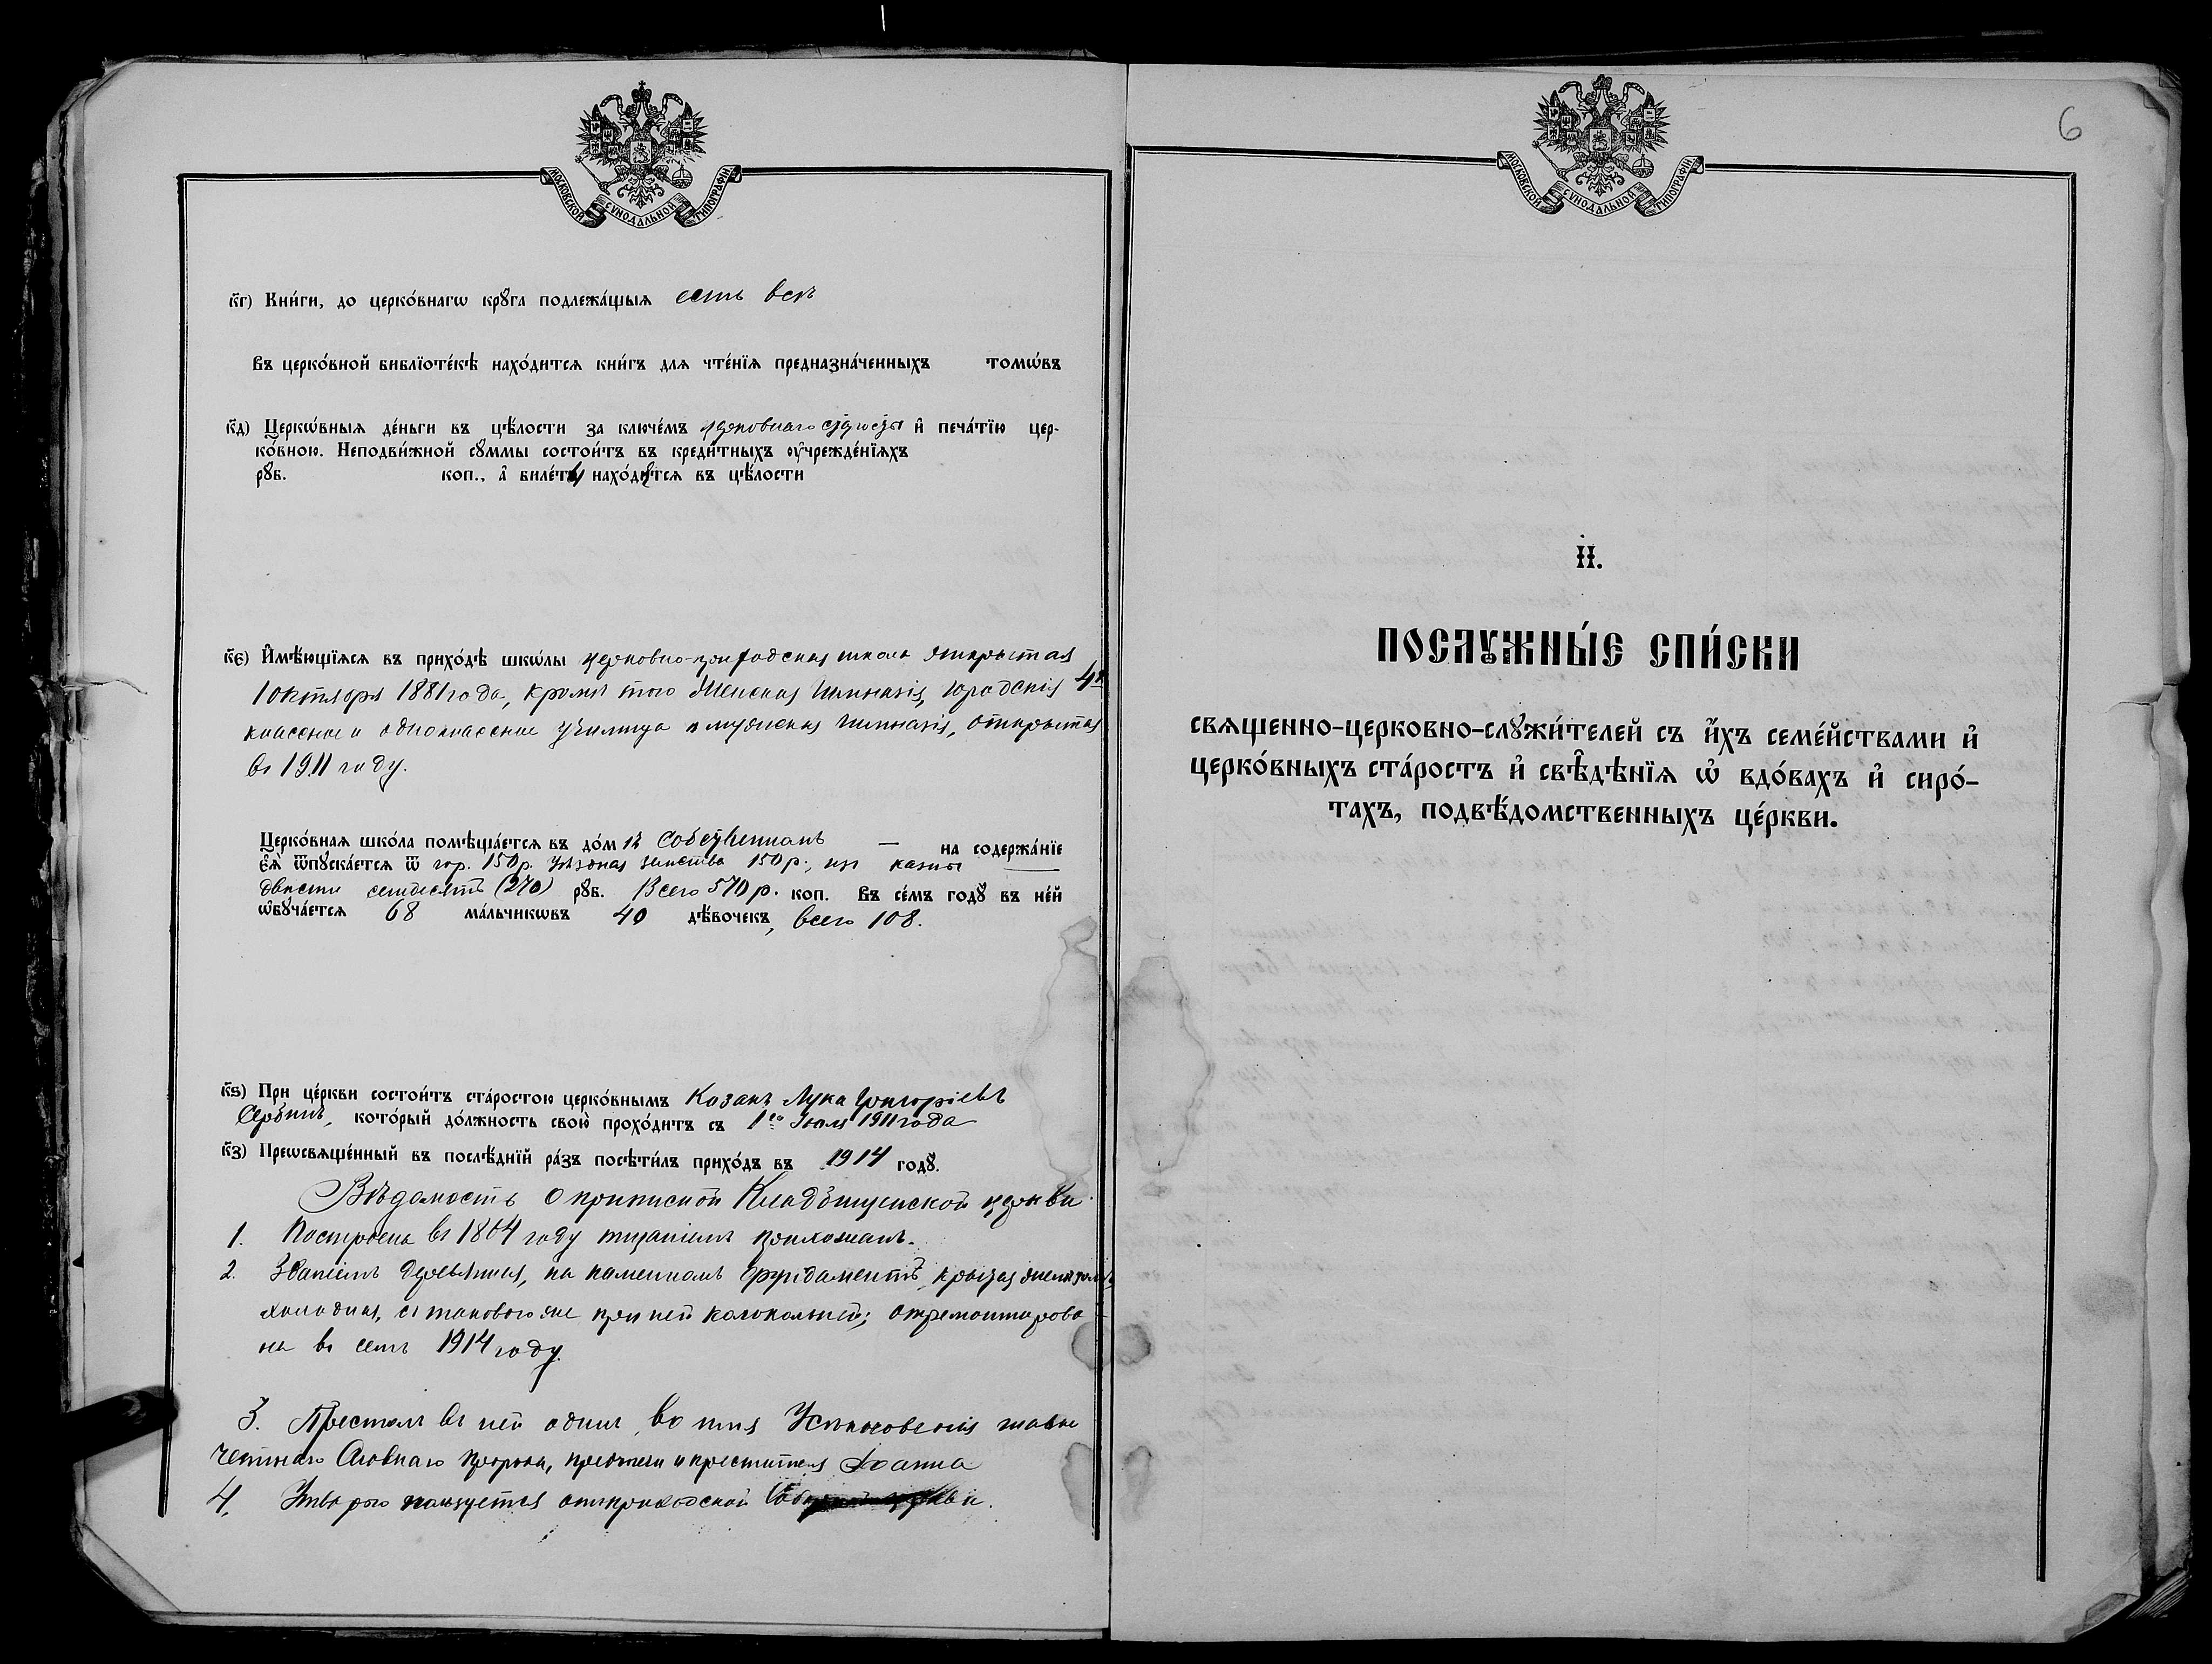 МОСКОВСКОЙ СѴНОДАЛЬНОЙ ТИПОГРАФІИ
к҃г) Кни́ги, до церко́внагѡ крꙋ́га подлежа́щыѧ есть всѣ
Въ церко́вной библїоте́кѣ нахо́дитсѧ кни́гъ длѧ чте́нїѧ предназна́ченныхъ томѡ́въ
к҃д) Церкѡ́вныѧ де́ньги въ цѣ́лости за ключе́мъ церковнаго старосты и҆ печа́тїю цер-
ко́вною. Неподви́жной сꙋ́ммы состои́тъ въ креди́тныхъ ᲂу҆чрежде́нїѧхъ
рꙋб. коп., а҆ биле́ты нахо́дѧтсѧ въ цѣ́лости
к҃є) И҆мѣ́ющїѧсѧ въ прихо́дѣ шкѡ́лы церковно-приходская школа открытая
1 октября 1881 года, кромѣ того Женская Гимназія, городскія 4х
классное и одноклассное училища и мужская гимназія, открытая
въ 1911 году.
Церко́внаѧ шко́ла помѣща́етсѧ въ до́мѣ собственномъ — на содержа́нїе
є҆ѧ̀ ѿпꙋска́етсѧ ѿ гор. 150 р. уѣзднаго земства 150 р., изъ казны
двѣсти семьдесятъ (270) рꙋб. Всего 570 р. коп. Въ се́мъ годꙋ̀ въ не́й
ѡ҆бꙋча́етсѧ 68 ма́льчикѡвъ 40 дѣ́вочекъ, всего 108.
к҃ѕ) При це́ркви состои́тъ ста́ростою церко́внымъ Козакъ Лука Григоріевъ
Сербинъ, кото́рый до́лжность свою̀ прохо́дитъ съ 1го Іюля 1911 года
к҃з) Преѡсвѧще́нный въ послѣ́днїй ра́зъ посѣти́лъ прихо́дъ въ 1914 годꙋ̀.
Вѣдомость о приписной Кладбищенской церкви
1. Построена въ 1864 году тщаніемъ прихожанъ.
2. Зданіемъ деревянная, на каменномъ фундаментѣ, крытая желѣзомъ
холодная, съ таковою же при ней колокольнею; отремонтирова
на въ семъ 1914 году.
3. Престолъ въ ней одинъ, во имя Усѣкновенія главы
честнаго Славнаго пророка, предтечи и крестителя Іоанна
4. Утварью пользуется отъ приходской
6
II.
ПОСЛꙊЖНЫ́Е СПИ́СКИ
свѧщенно-церковно-слꙋжи́телей съ и҆́хъ семе́йствами и҆
церко́вныхъ ста́ростъ и҆ свѣ́дѣнїѧ ѡ҆ вдо́вахъ и҆ сиро́-
тахъ, подвѣ́домственныхъ це́ркви.
МОСКОВСКОЙ СѴНОДАЛЬНОЙ ТИПОГРАФІИ